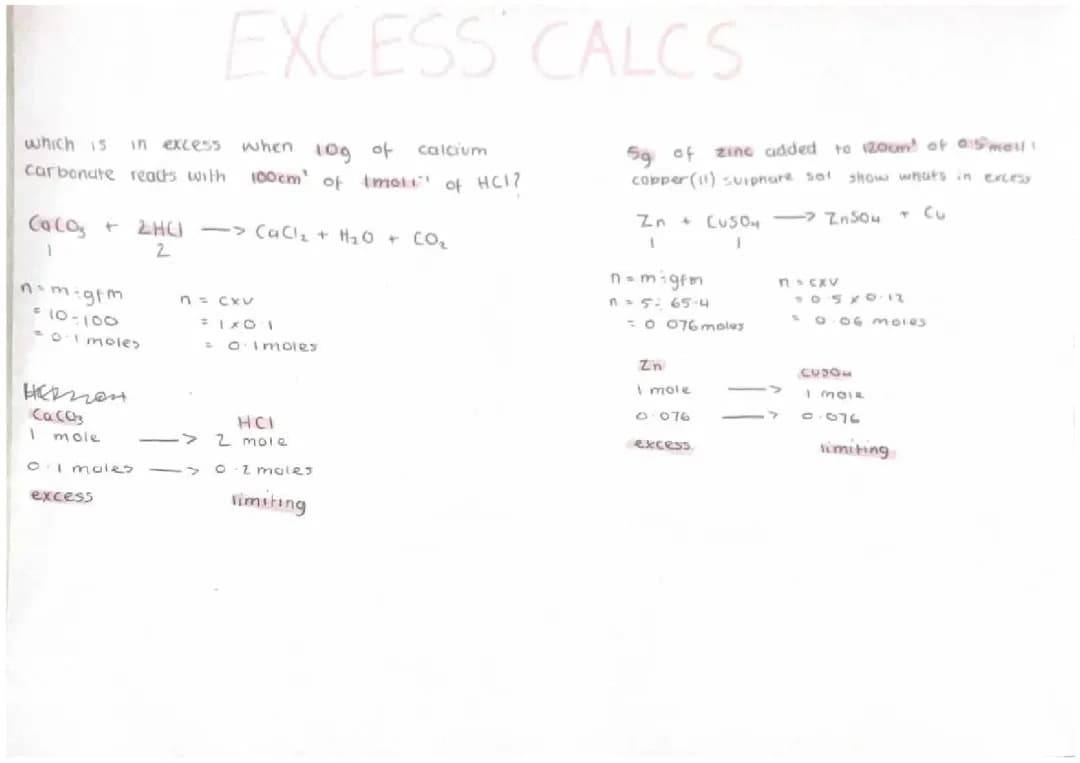 EXCESS CALCS
which is in excess when 10g of calcium
carbonate reacts with 100cm³ of 1moll⁻¹ of HCl?
CaCO₃ + 2HCl —> CaCl₂ + H₂O + CO₂
1 2
n=m÷gfm
= 10÷100
= 0.1 moles
n = cxv
= 1 x 0.1
= 0.1moles
CaCO₃
HCl
1 mole —> 2 mole
0.1 moles —> 0.2 moles
excess
limiting
5g of zinc added to 120cm³ of 0.5moll⁻¹
copper(II) sulphate sol show whats in excess
Zn + CuSO₄ —> ZnSO₄ + Cu
1 1
n=m÷gfm
n = 5÷65.4
= 0.076moles
n = cxv
= 0.5 x 0.12
= 0.06 moles
Zn
CuSO₄
1 mole —> 1 mole
0.076 —> 0.076
excess
limiting